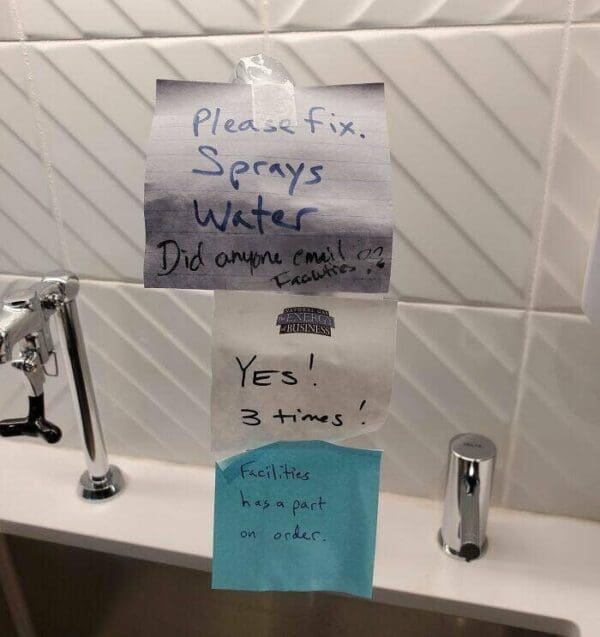 Please fix.
Sprays
Water
Did anyone email
Facilities ??
NATURAL GAS
ENERGY
BUSINESS
YES!
3 times!
Facilities
has a part
on order.